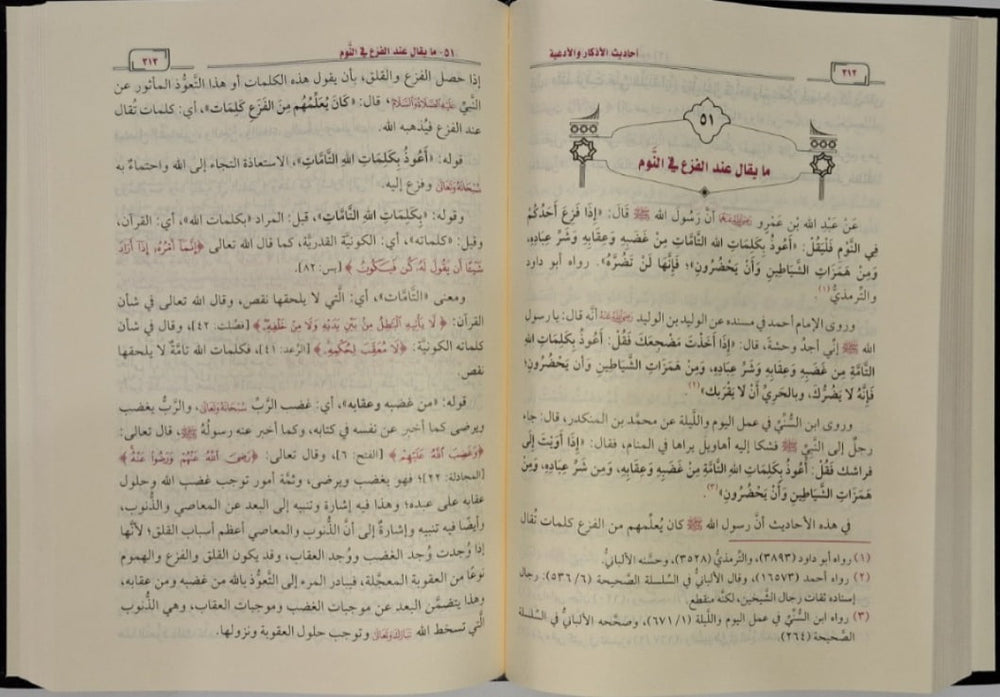 أحاديث الأذكار والأدعية
٣١٢
٥١
ما يقال عند الفزع في النَّوم
عَنْ عَبْدِ الله بن عَمْرٍو رَضِيَ اللَّهُ عَنْهُمَا أَنَّ رَسُولَ الله ﷺ قَالَ: «إِذَا فَزِعَ أَحَدُكُمْ
فِي النَّوْمِ فَلْيَقُلْ: «أَعُوذُ بِكَلِمَاتِ الله التَّامَّاتِ مِنْ غَضَبِهِ وَعِقَابِهِ وَشَرِّ عِبَادِهِ،
وَمِنْ هَمَزَاتِ الشَّيَاطِينِ وَأَنْ يَحْضُرُونِ»؛ فَإِنَّهَا لَنْ تَضُرَّهُ». رواه أبو داود
والتِّرمذيُّ(١).
وروى الإمام أحمد في مسنده عن الوليد بن الوليد رَضِيَ اللَّهُ عَنْهُ أنَّه قال: يا رسول
الله ﷺ إنِّي أجدُ وحشةً، قال: «إِذَا أَخَذْتَ مَضْجِعَكَ فَقُلْ: أَعُوذُ بِكَلِمَاتِ الله
التَّامَّةِ مِن غَضَبِهِ وَعِقَابِهِ وَشَرِّ عِبَادِهِ، وَمِنْ هَمَزَاتِ الشَّيَاطِينِ وأن يَحْضُرُونِ؛
فَإِنَّهُ لَا يَضُرُّكَ، وبالحَرِيِّ أَنْ لَا يَقْرَبك»(٢)
وروى ابن السُّنِّيِّ في عمل اليوم واللَّيلة عن محمَّد بن المنكدر، قال: جاء
رجلٌ إلى النَّبيِّ ﷺ فشكا إليه أهاويل يراها في المنام، فقال: «إِذَا أَوَيْتَ إِلَى
فراشك فَقُلْ: أَعُوذُ بِكَلِمَاتِ الله التَّامَّةِ مِنْ غَضَبِهِ وَعِقَابِهِ، وَمِن شَرِّ عِبَادِهِ، وَمِنْ
هَمَزَاتِ الشَّيَاطِينِ وَأَنْ يَحْضُرُونِ»(٣).
في هذه الأحاديث أنَّ رسول الله ﷺ كان يُعلِّمهم من الفزع كلمات تُقال
(١) رواه أبو داود (٣٨٩٣)، والتِّرمذيُّ (٣٥٢٨)، وحسَّنه الألبانيُّ.
(٢) رواه أحمد (١٦٥٧٣)، وقال الألبانيُّ في السِّلسلة الصَّحيحة (٥٣٦/٦): رجال
إسناده ثقات رجال الشَّيخين، لكنَّه منقطع.
(٣) رواه ابن السُّنِّيِّ في عمل اليوم واللَّيلة (٦٧١/١)، وصحَّحه الألبانيُّ في السِّلسلة
الصَّحيحة (٢٦٤).
٥١- ما يقال عند الفزع في النَّوم
٣١٣
إذا حصل الفزع والقلق، بأن يقول هذه الكلمات أو هذا التَّعوُّذ المأثور عن
النَّبيِّ عَلَيْهِ الصَّلَاةُ وَالسَّلَامُ، قال: «كَانَ يُعَلِّمُهُم مِنَ الفَزَعِ كَلِمَات»، أي: كلمات تُقال
عند الفزع فيُذهبه الله.
قوله: «أَعُوذُ بِكَلِمَاتِ الله التَّامَّاتِ»، الاستعاذة التجاء إلى الله واحتماءٌ به
سُبْحَانَهُ وَتَعَالَى وفزع إليه.
وقوله: «بِكَلِمَاتِ الله التَّامَّاتِ»، قيل: المراد «بكلمات الله»، أي: القرآن،
وقيل: «كلماته»، أي: الكونيَّة القدريَّة، كما قال الله تعالى ﴿إِنَّمَا أَمْرُهُ إِذَا أَرَادَ
شَيْئًا أَن يَقُولَ لَهُ كُن فَيَكُونُ﴾ [يس: ٨٢].
ومعنى «التَّامَّات»، أي: الَّتي لا يلحقها نقص، وقال الله تعالى في شأن
القرآن: ﴿لَا يَأْتِيهِ الْبَاطِلُ مِن بَيْنِ يَدَيْهِ وَلَا مِنْ خَلْفِهِ﴾ [فصِّلت: ٤٢]، وقال في شأن
كلماته الكونيَّة: ﴿لَا مُعَقِّبَ لِحُكْمِهِ﴾ [الرَّعد: ٤١]، فكلمات الله تامَّةٌ لا يلحقها
نقص.
قوله: «من غضبه وعقابه»، أي: غضب الرَّبِّ سُبْحَانَهُ وَتَعَالَى، والرَّبُّ يغضب
ويرضى كما أخبر عن نفسه في كتابه، وكما أخبر عنه رسولُهُ ﷺ، قال تعالى:
﴿وَغَضِبَ اللَّهُ عَلَيْهِمْ﴾ [الفتح: ٦]، وقال تعالى: ﴿رَضِيَ اللَّهُ عَنْهُمْ وَرَضُوا عَنْهُ﴾
[المجادلة: ٢٢]؛ فهو يغضب ويرضى، وثمَّة أمور توجب غضب الله وحلول
عقابه على عبده؛ وهذا فيه إشارة وتنبيه إلى البعد عن المعاصي والذُّنوب،
وأيضًا فيه تنبيه وإشارةٌ إلى أنَّ الذُّنوب والمعاصي أعظم أسباب القلق؛ لأنَّها
إذا وُجدت وُجد الغضب ووُجد العقاب، وقد يكون القلق والفزع والهموم
نوعًا من العقوبة المعجَّلة، فيبادر المرء إلى التَّعوُّذ بالله من غضبه ومن عقابه،
وهذا يتضمَّن البعد عن موجبات الغضب وموجبات العقاب، وهي الذُّنوب
الَّتي تسخط الله تَبَارَكَ وَتَعَالَى وتوجب حلول العقوبة ونزولها.